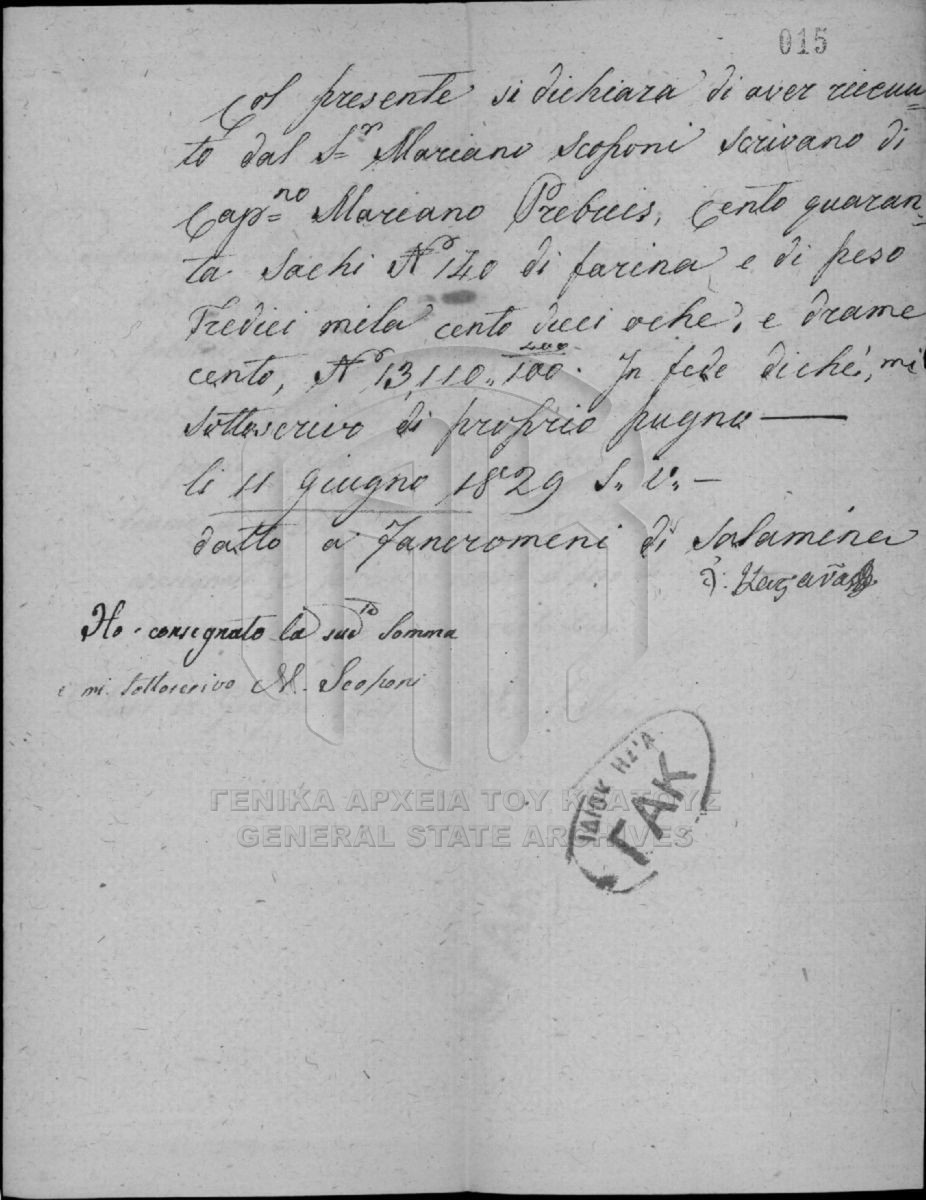 015
Col presente si dichiara di aver riceuu=
to dal S=r Mariano Scoponi Scrivano di
Cap=no Mariano Prebuis, Cento quaran=
ta Sachi No 140 di farina e di peso
Tredici mila cento dieci oche, e drame
cento, No 13,110,, 100/400. In fede di che, mi
Sottoscrivo di proprio pugno —
li 11 Giugno 1829 S,, V,, —
datto a Faneromeni di Salamina
Ho consegnato la sud.ta Somma
e mi Sottoscrivo M. Scoponi
ΙΔΙΟΚΤΗΣΙΑ
ΓΑΚ
ΓΕΝΙΚΑ ΑΡΧΕΙΑ ΤΟΥ ΚΡΑΤΟΥΣ
GENERAL STATE ARCHIVES